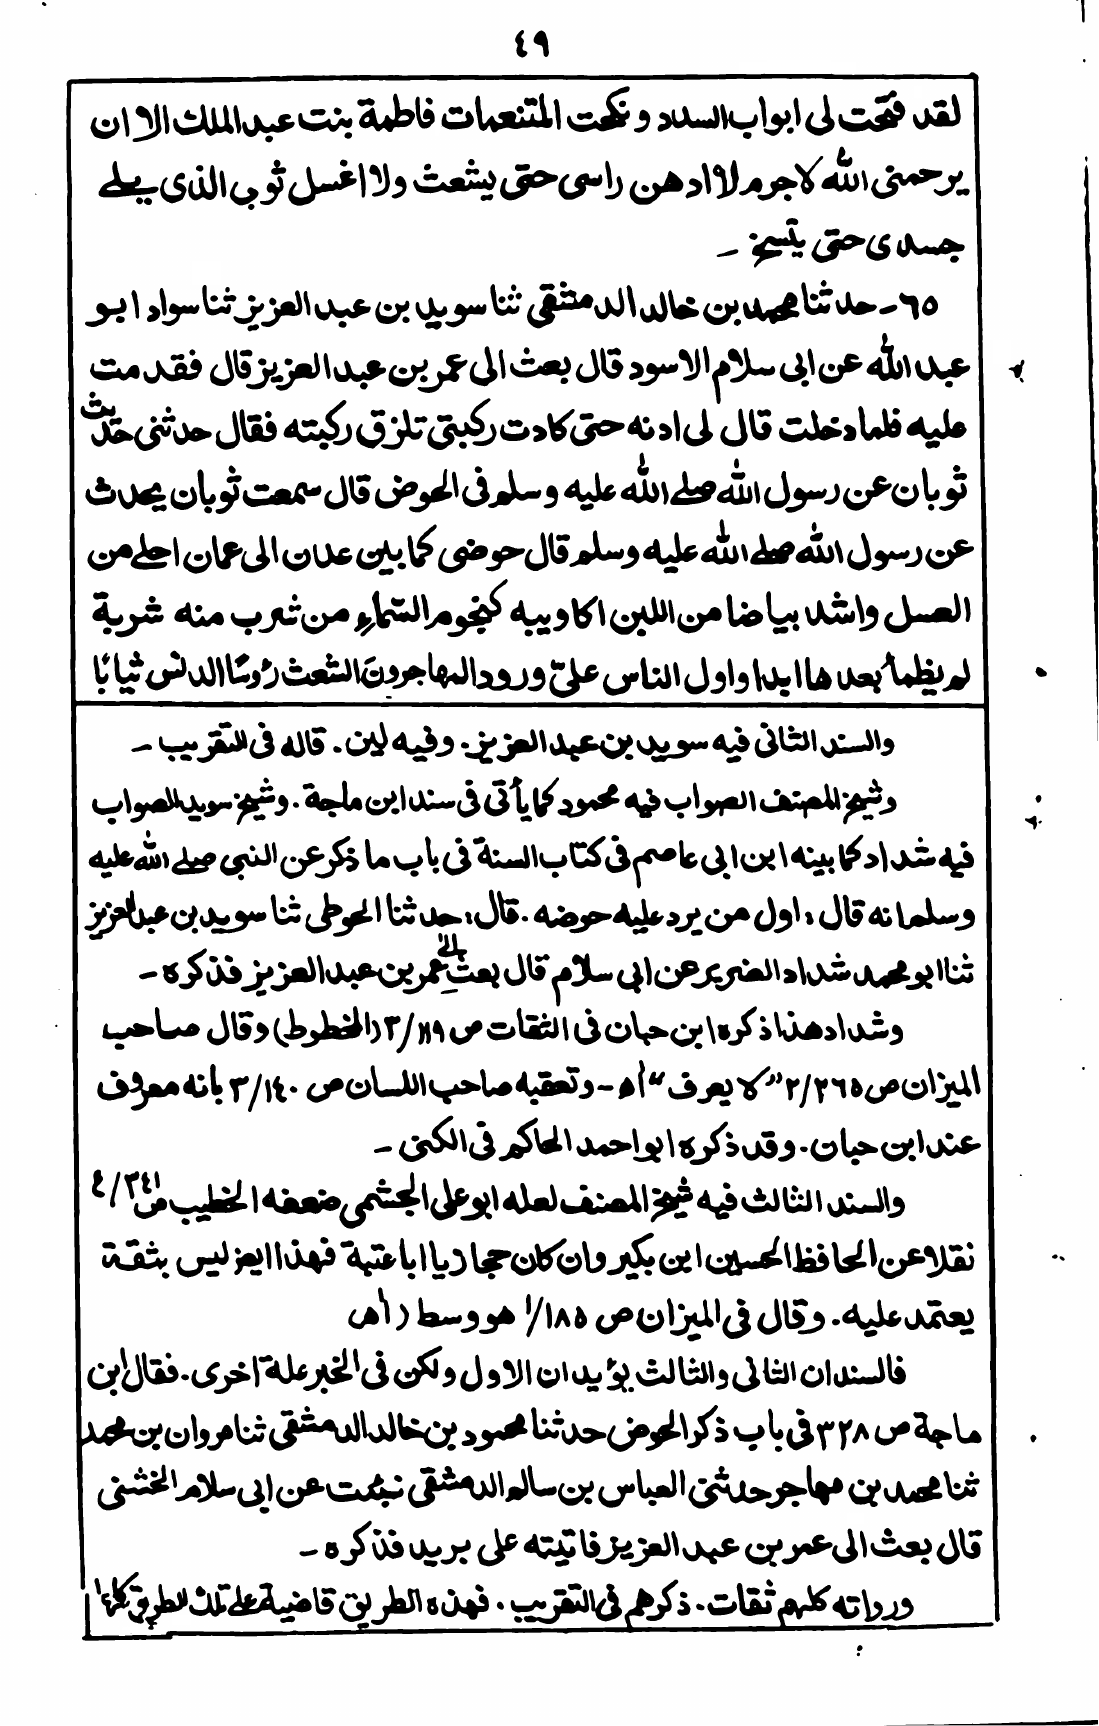 ٤٩
لقد فتحت لى ابواب السدد و نكحت المتنعمات فاطمة بنت عبد الملك الا ان
يرحمنى الله لا جرم لا ادهن راسى حتى يشعث ولا اغسل ثوبى الذى يلى
جسدى حتى يتسخ ـ
٦٥ـ حدثنا محمد بن خالد الدمشقى ثنا سويد بن عبد العزيز ثنا سواد ابو
عبد الله عن ابى سلام الاسود قال بعث الى عمر بن عبد العزيز قال فقدمت
عليه فلما دخلت قال لى ادنه حتى كادت ركبتى تلزق ركبته فقال حدثنى حديث
ثوبان عن رسول الله صلى الله عليه وسلم فى الحوض قال سمعت ثوبان يحدث
عن رسول الله صلى الله عليه وسلم قال حوضى كما بين عدن الى عمان احلى من
العسل واشد بياضا من اللبن اكاويبه كنجوم السّماءِ من شرب منه شربة
لم يظمأ بعدها ابدا و اول الناس علىّ ورود المهاجرون الشعث رُوسًا الدنس ثيابًا
والسند الثانى فيه سويد بن عبد العزيز. وفيه لين. قاله فى التقريب ـ
وشيخ المصنف الصواب فيه محمود كما يأتى فى سند ابن ماجة. وشيخ سويد الصواب
فيه شداد كما بينه ابن ابى عاصم فى كتاب السنة فى باب ما ذكر عن النبى صلى الله عليه
وسلم انه قال: اول من يرد عليه حوضه. قال: حدثنا الحوطى ثنا سويد بن عبد العزيز
ثنا ابو محمد شداد الضرير عن ابى سلام قال بعث إلىّ عمر بن عبد العزيز فذكره ـ
وشداد هذا ذكره ابن حبان فى الثقات ص ٣/١١٩ (المخطوط) وقال صاحب
الميزان ص ٢/٢٦٥ "لا يعرف" أه ـ وتعقبه صاحب اللسان ص ٣/١٤٠ بانه معروف
عند ابن حبان. وقد ذكره ابو احمد الحاكم فى الكنى ـ
والسند الثالث فيه شيخ المصنف لعله ابو على الجشمى ضعفه الخطيب ص ٤/٣٤١
نقلا عن الحافظ الحسين ابن بكير وان كان حجازيا ابا عتبة فهذا ايضا ليس بثقة
يعتمد عليه. وقال فى الميزان ص ١/١٨٥ هو وسط (أه
فالسندان الثانى والثالث يؤيدان الاول ولكن فى الخبر علة آخرى. فقال ابن
ماجة ص ٣٢٨ فى باب ذكر الحوض حدثنا محمود بن خالد الدمشقى ثنا مروان بن محمد
ثنا محمد بن مهاجر حدثنى العباس بن سالم الدمشقى نبئت عن ابى سلام الخشنى
قال بعث الى عمر بن عبد العزيز فاتيته على بريد فذكره ـ
ورواته كلهم ثقات. ذكرهم فى التقريب. فهذه الطريق قاضية على تلك الطريق كلها